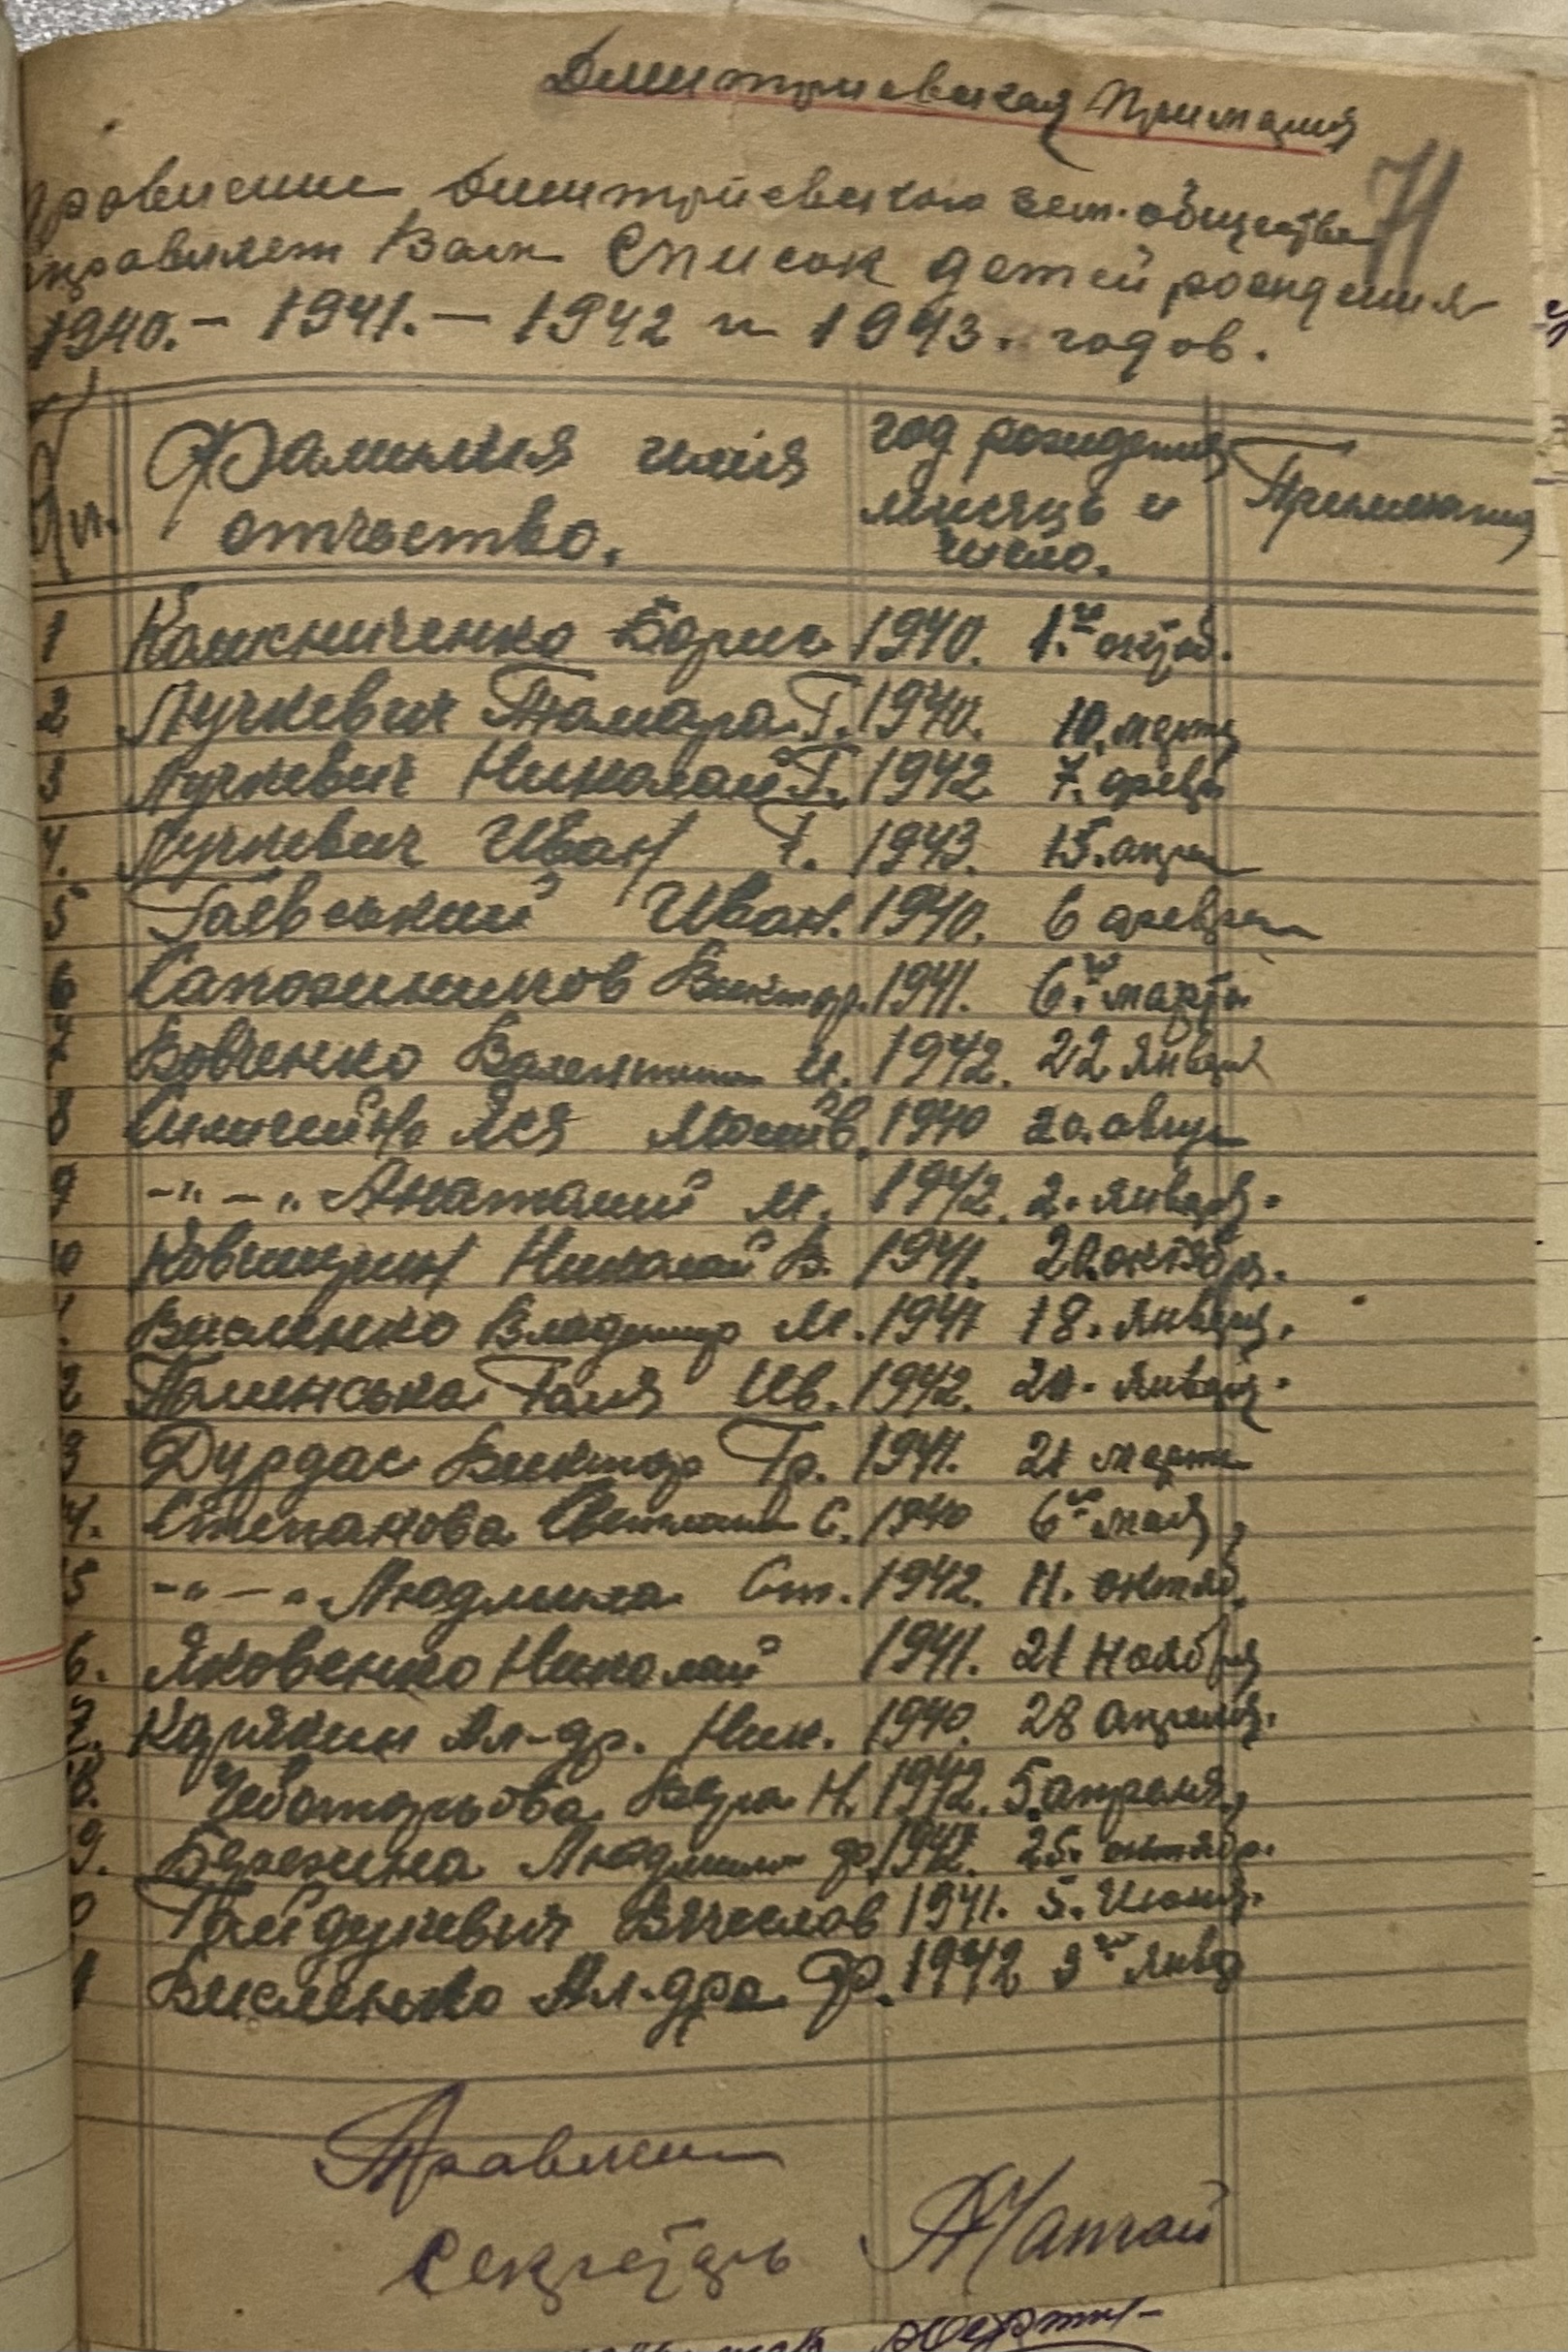 Дмитриевская Примария
71
Правление Дмитриевского зем. общества
направляет Вам Список детей рождения
1940. - 1941. - 1942 и 1943. годов.
Фамилия имия год рождения
отчество. мисяць и Примечания
число.
1 Борис 1940. 1го октяб.
2 Лучкевич Тамара Г. 1940. 10. марта
3 Лучкевич Николай Г. 1942 7. февр
4. Лучкевич Иван Г. 1943. 15. апрел
5 Гаевський Иван. 1940. 6 феврал
6 Сапожников Виктор. 1941. 6го марта
7 Вовченко Валентин И. 1942. 22 Января
8 Ася 1940 20. авгус
9 -"-" Анатолий М. 1942. 2. Января.
10 Николай В. 1941. 20. октябр.
1. Висленко Владимир М. 1941 18. Января.
2 Галя Ив. 1942. 20. Января.
3 Дурдас Виктор Гр. 1941. 21 марта
4. Степанова Светлана С. 1940 6го мая,
5 -"-" Людмила Ст. 1942. 11. октяб.
6. Яковенко Николай 1941. 21 Ноября
7. Карякин Ал-др. Ник. 1940. 28 апреля.
8. Чеботарьова Вера Н. 1942. 5. апреля,
9. Бережина Людмила Ф. 25. октябр.
0 Гайдукевич Вячеслав 1941. 5. Июня.
1 Висленко Ал-дра Ф. 1942 3го Янвр
Правлени
Секретарь